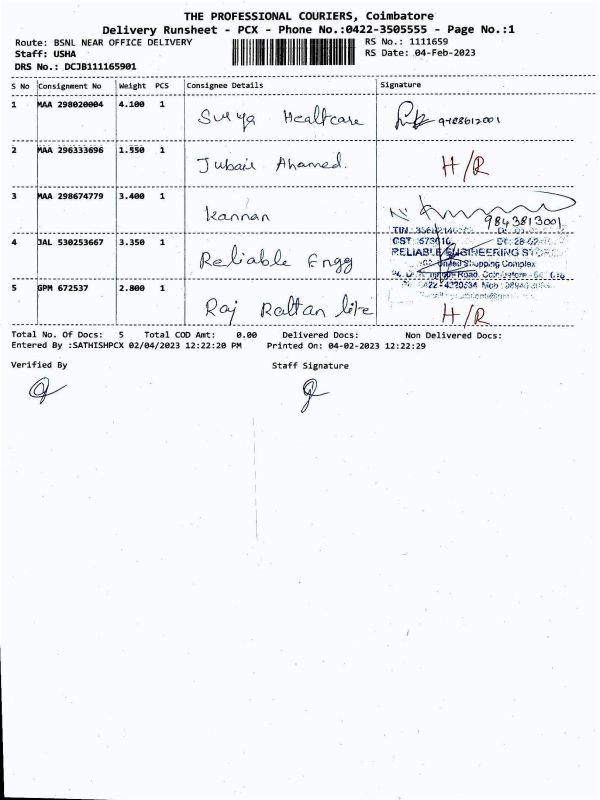 THE PROFESSIONAL COURIERS, Coimbatore
Delivery Runsheet - PCX - Phone No.:0422-3505555 - Page No.:1
Route: BSNL NEAR OFFICE DELIVERY
RS No.: 1111659
Staff: USHA
RS Date: 04-Feb-2023
DRS No.: DCJB111165901
S No Consignment No Weight PCS Consignee Details Signature
1 MAA 298020004 4.100 1 Surya Healtcare
2 MAA 296333696 1.550 1 Jubair Ahamed. H/R
3 MAA 298674779 3.400 1 Kannan 9843813001
4 JAL 530253667 3.350 1 Reliable Engg
RELIABLE ENGINEERING
Shopping Complex
5 GPM 672537 2.800 1 Raj Rattan lite H/R
Total No. Of Docs: 5 Total COD Amt: 0.00 Delivered Docs: Non Delivered Docs:
Entered By :SATHISHPCX 02/04/2023 12:22:20 PM Printed On: 04-02-2023 12:22:29
Verified By Staff Signature